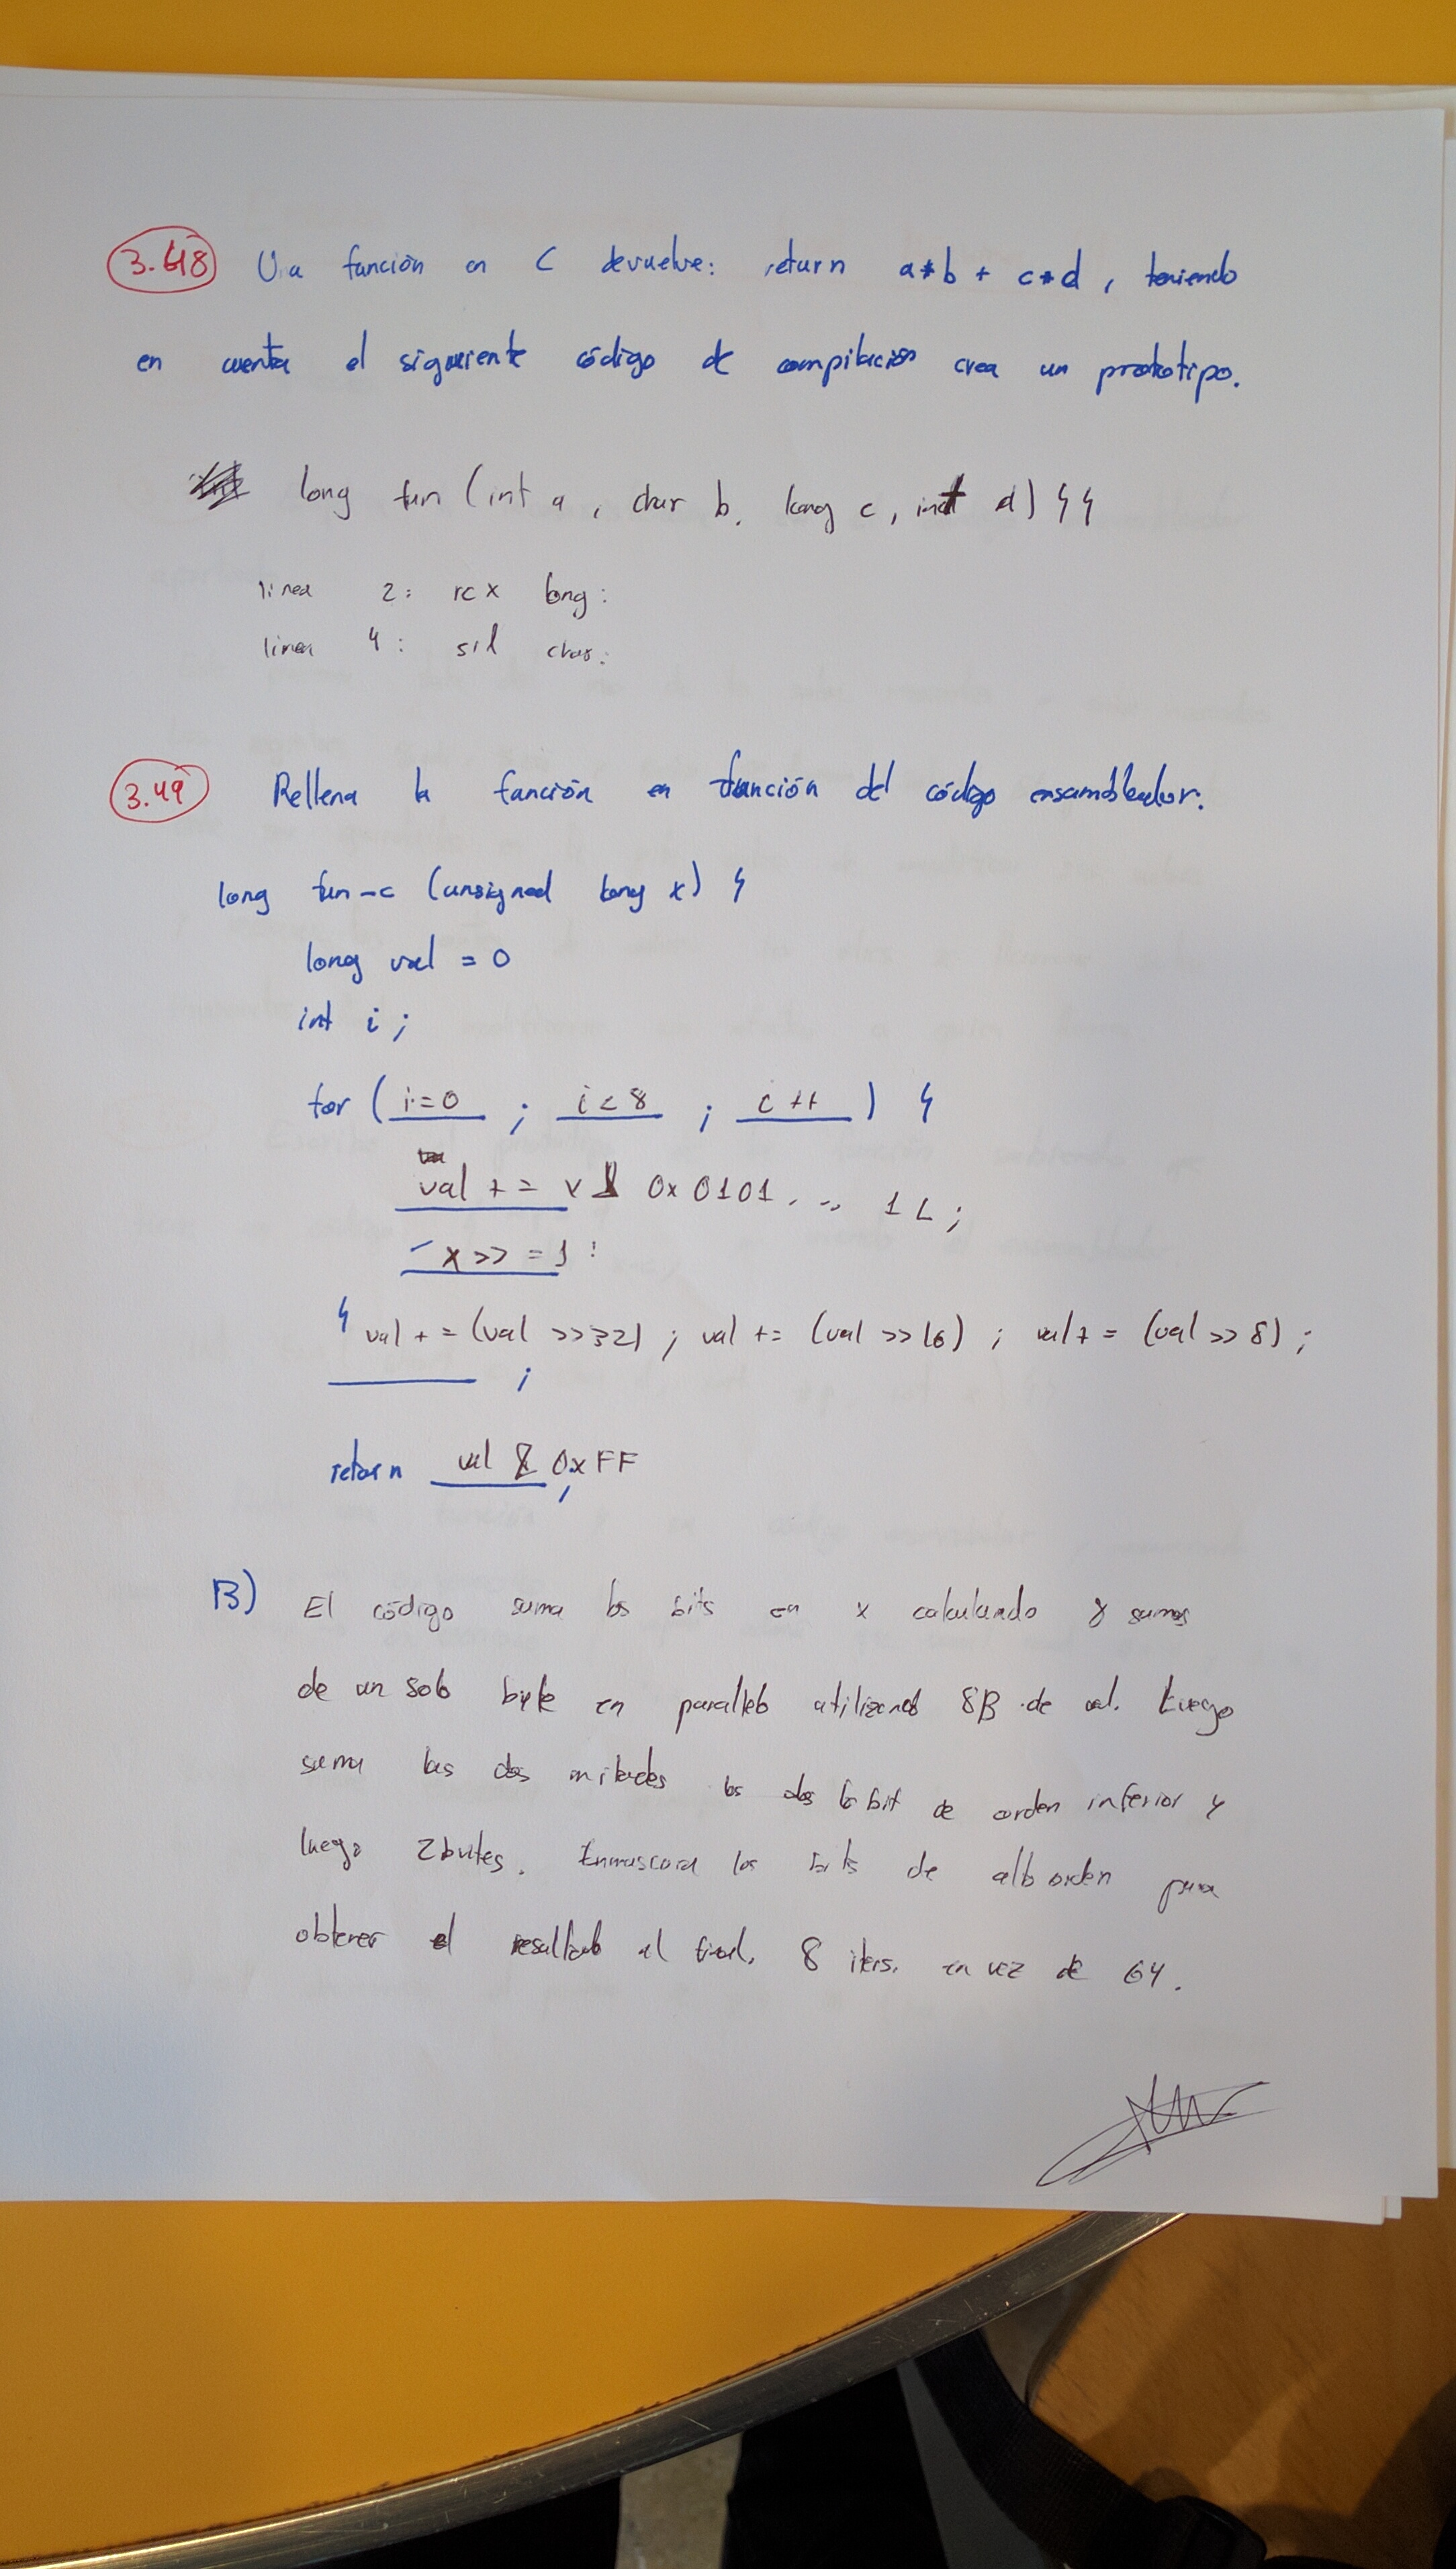 3.48 Una función en C devuelve: return a*b + c*d, teniendo
en cuenta el siguiente código de compilación crea un prototipo.
long fun (int a, char b, long c, int d) {}
linea 2: rcx long:
linea 4: sil char:
3.49 Rellena la función en función del código ensamblador.
long fun-c (unsigned long x) {
long val = 0
int i;
for (i=0 ; i<8 ; i++) {
val += x & 0x0101... 1L;
x >>= 1;
} val += (val >>32) ; val += (val >>16) ; val += (val >> 8) ;
;
return val & 0xFF ;
B) El código suma los bits en x calculando 8 sumas
de un solo byte en paralelo utilizando 8B de val. Luego
suma las dos mitades los dos 16 bit de orden inferior y
luego 2 bytes. Enmascara los bits de alto orden para
obtener el resultado al final. 8 iters. en vez de 64.